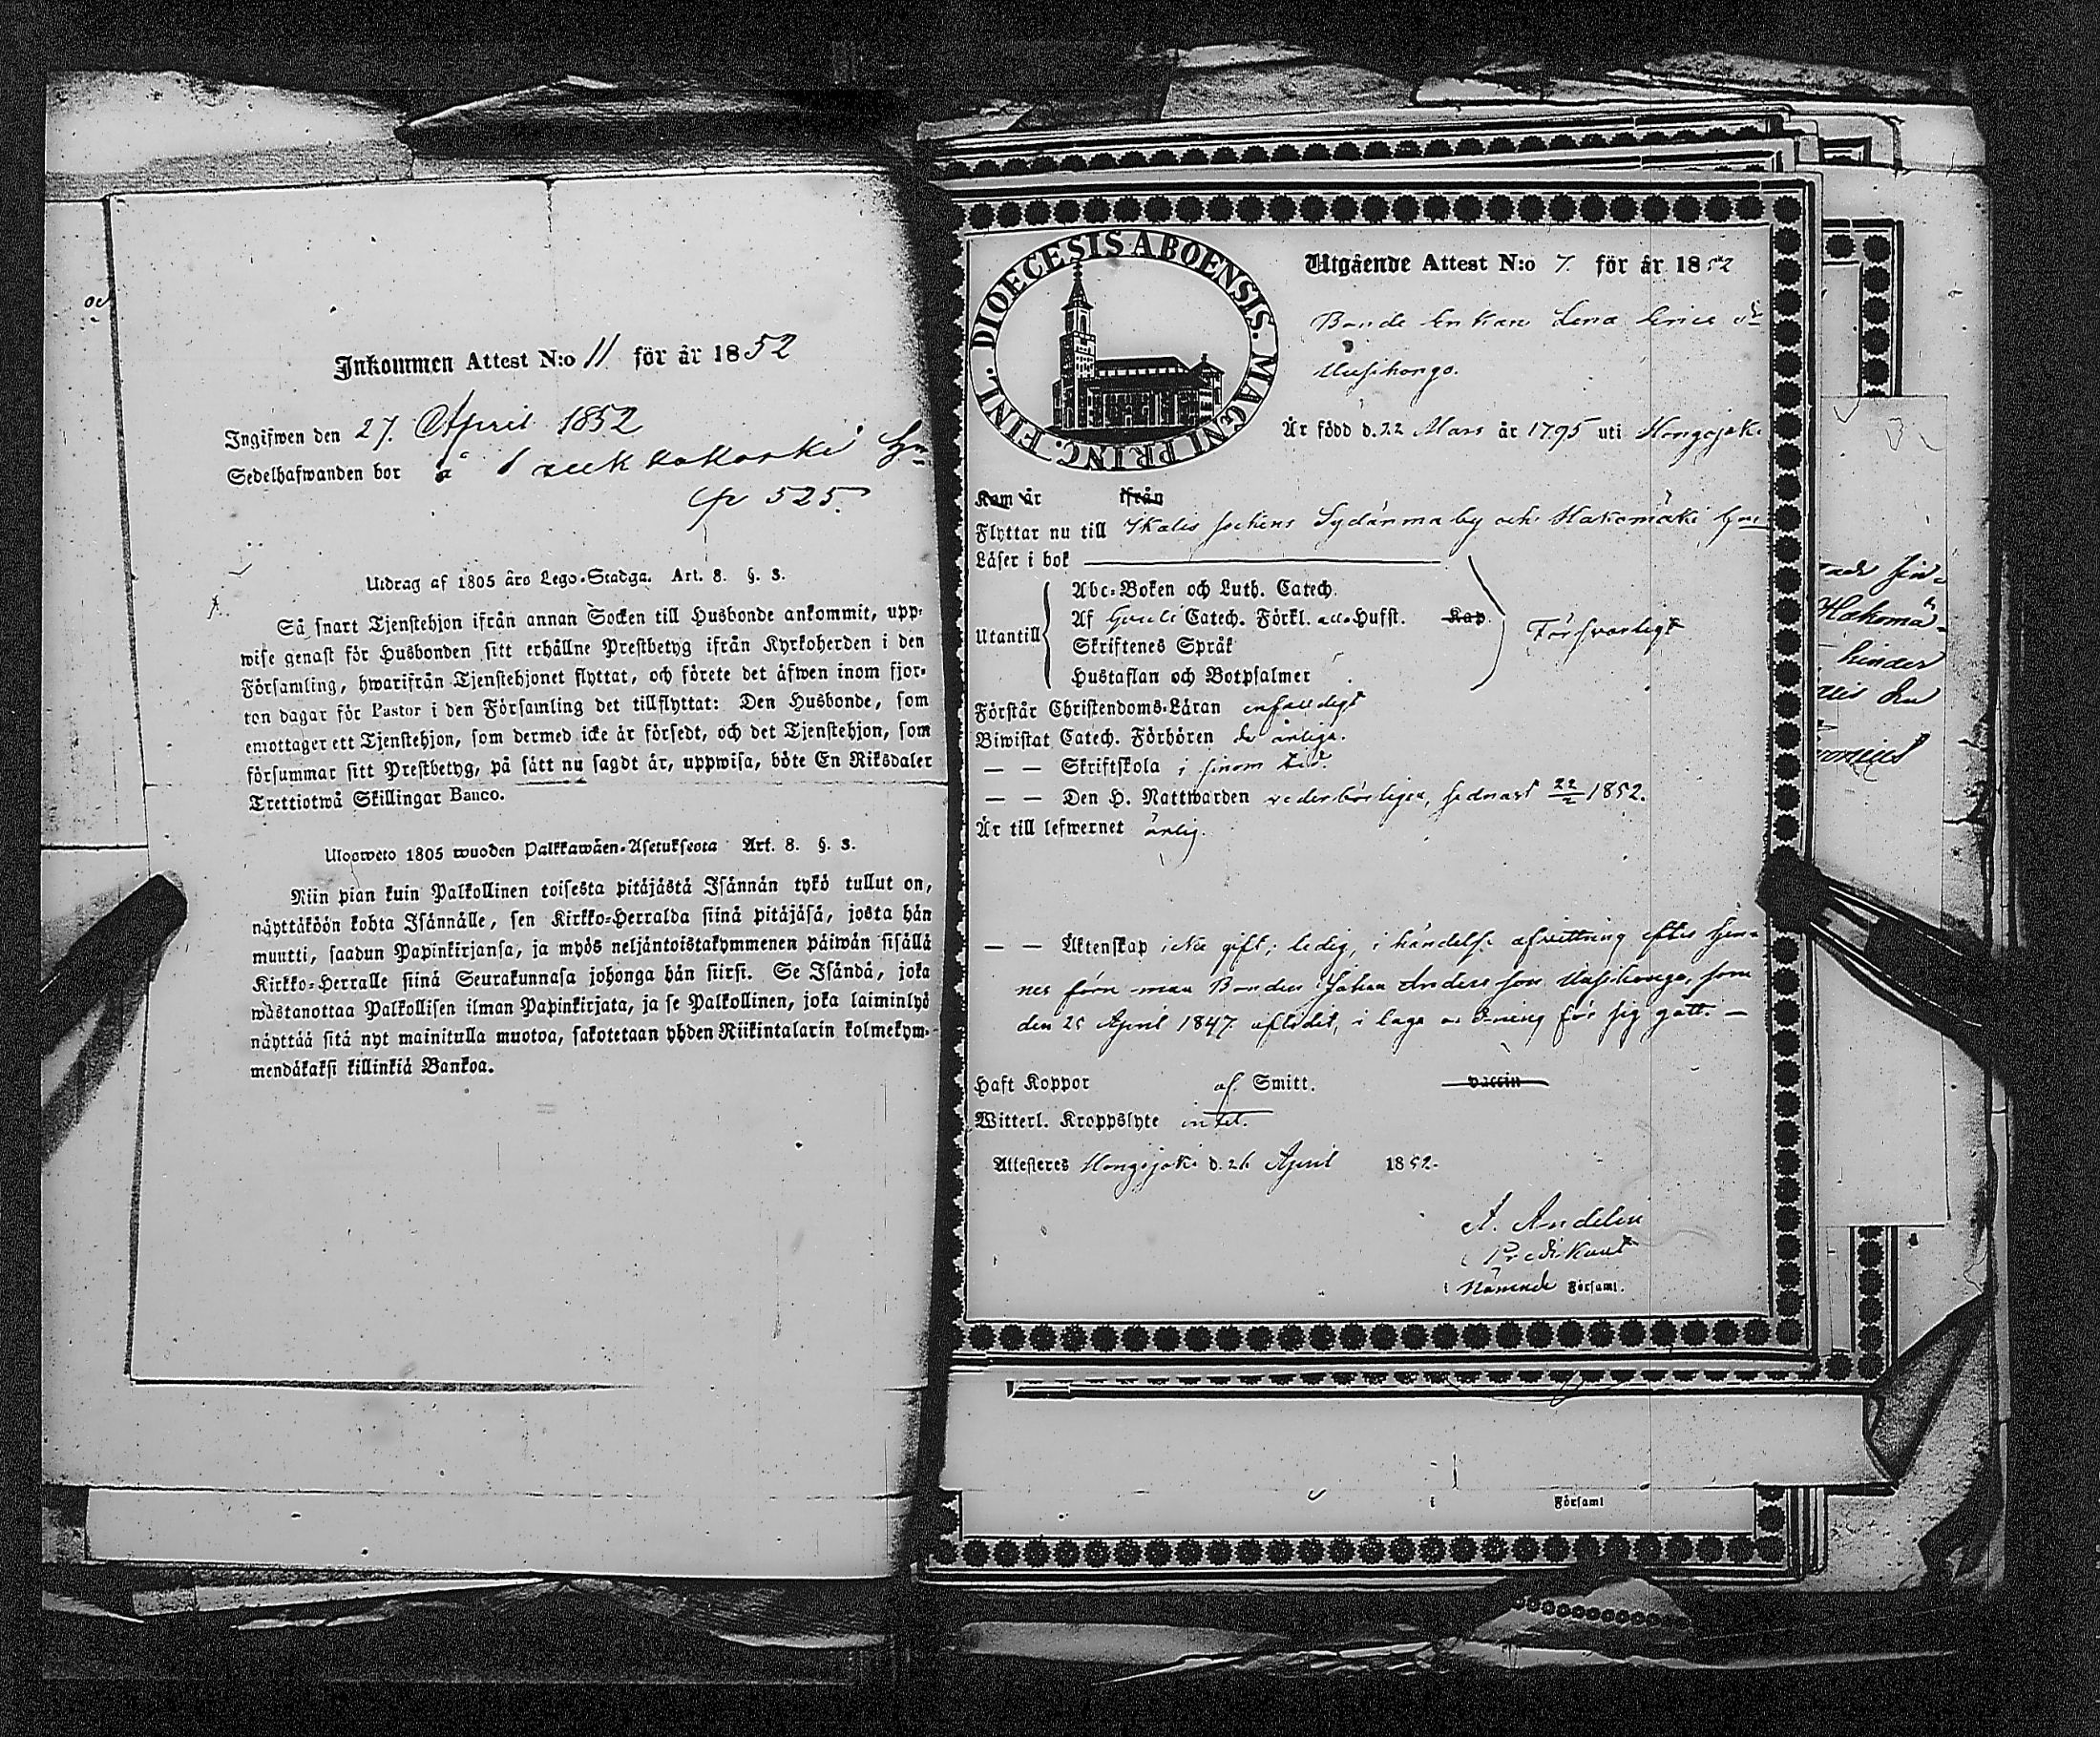 Inkommen Attest N:o 11 för år 1852
Ingifwen den 27. April 1852
Sedelhafwanden bor å
525.
Utdrag af 1805 åro Lego-Stadga. Art. 8. §. 3.
Så snart Tjenstehjon ifrån annan Socken till Husbonde ankommit, upp-
wise genast för Husbonden sitt erhållne Prestbetyg ifrån Kyrkoherden i den
Församling, hwarifrån Tjenstehjonet flyttat, och förete det äfwen inom fjor-
ton dagar för Pastor i den Församling det tillflyttat: Den Husbonde, som
emottager ett Tjenstehjon, som dermed icke är försedt, och det Tjenstehjon, som
försummar sitt Prestbetyg, på sätt nu sagdt är, uppwisa, böte En Riksdaler
Trettiotwå Skillingar Banco.
Ulosweto 1805 wuoden Palkkawäen-Asetuksesta Art. 8. §. 3.
Niin pian kuin Palkollinen toisesta pitäjästä Isännän tykö tullut on,
näyttäköön kohta Isännälle, sen Kirkko-Herralda siinä pitäjäsä, josta hän
muutti, saadun Papinkirjansa, ja myös neljäntoistakymmenen päiwän sisällä
Kirkko-Herralle siinä Seurakunnasa johonga hän siirsi. Se Isändä, joka
wastanottaa Palkollisen ilman Papinkirjata, ja se Palkollinen, joka laiminlyö
näyttää sitä nyt mainitulla muotoa, sakotetaan yhden Riikintalarin kolmekym-
mendäkaksi killinkiä Bankoa.
DIOECESIS ABOENSIS. MAGNI PRINC. FINL.
Utgående Attest N:o 7. för år 1852
Bonde Enkan Lena
Uusihongo.
Är född d. 22 Mars år 1795 uti Hongojoki
Kom år ifrån
Flyttar nu till Ikalis sockens Sydänma by och Hakomäki
Läser i bok
Abc-Boken och Luth. Catech.
Af Catech. Förkl. Hufst. Kap.
Utantill
Skriftenes Språk
Försvarligt
Hustaflan och Botpsalmer
Förstår Christendoms-Läran enfaldigt
Biwistat Catech. Förhören årliga.
— — Skriftskola i sinom tid.
— — Den H. Nattwarden vederbörligen, sednast 22/2 1852.
Är till lefwernet ärlig.
— — Äktenskap icke gift; ledig, i händelse afvittring efter hen-
nes förra man Bonden Johan Andersson Uusihongo, som
den 25 April 1847. aflidit, i laga ordning för sig gått. —
Haft Koppor af Smitt. vaccin
Witterl. Kroppslyte intet.
Attesteres Hongojoki d. 26 April 1852.
A. Andelin
Predikant
i Nämnde Församl.
i Församl